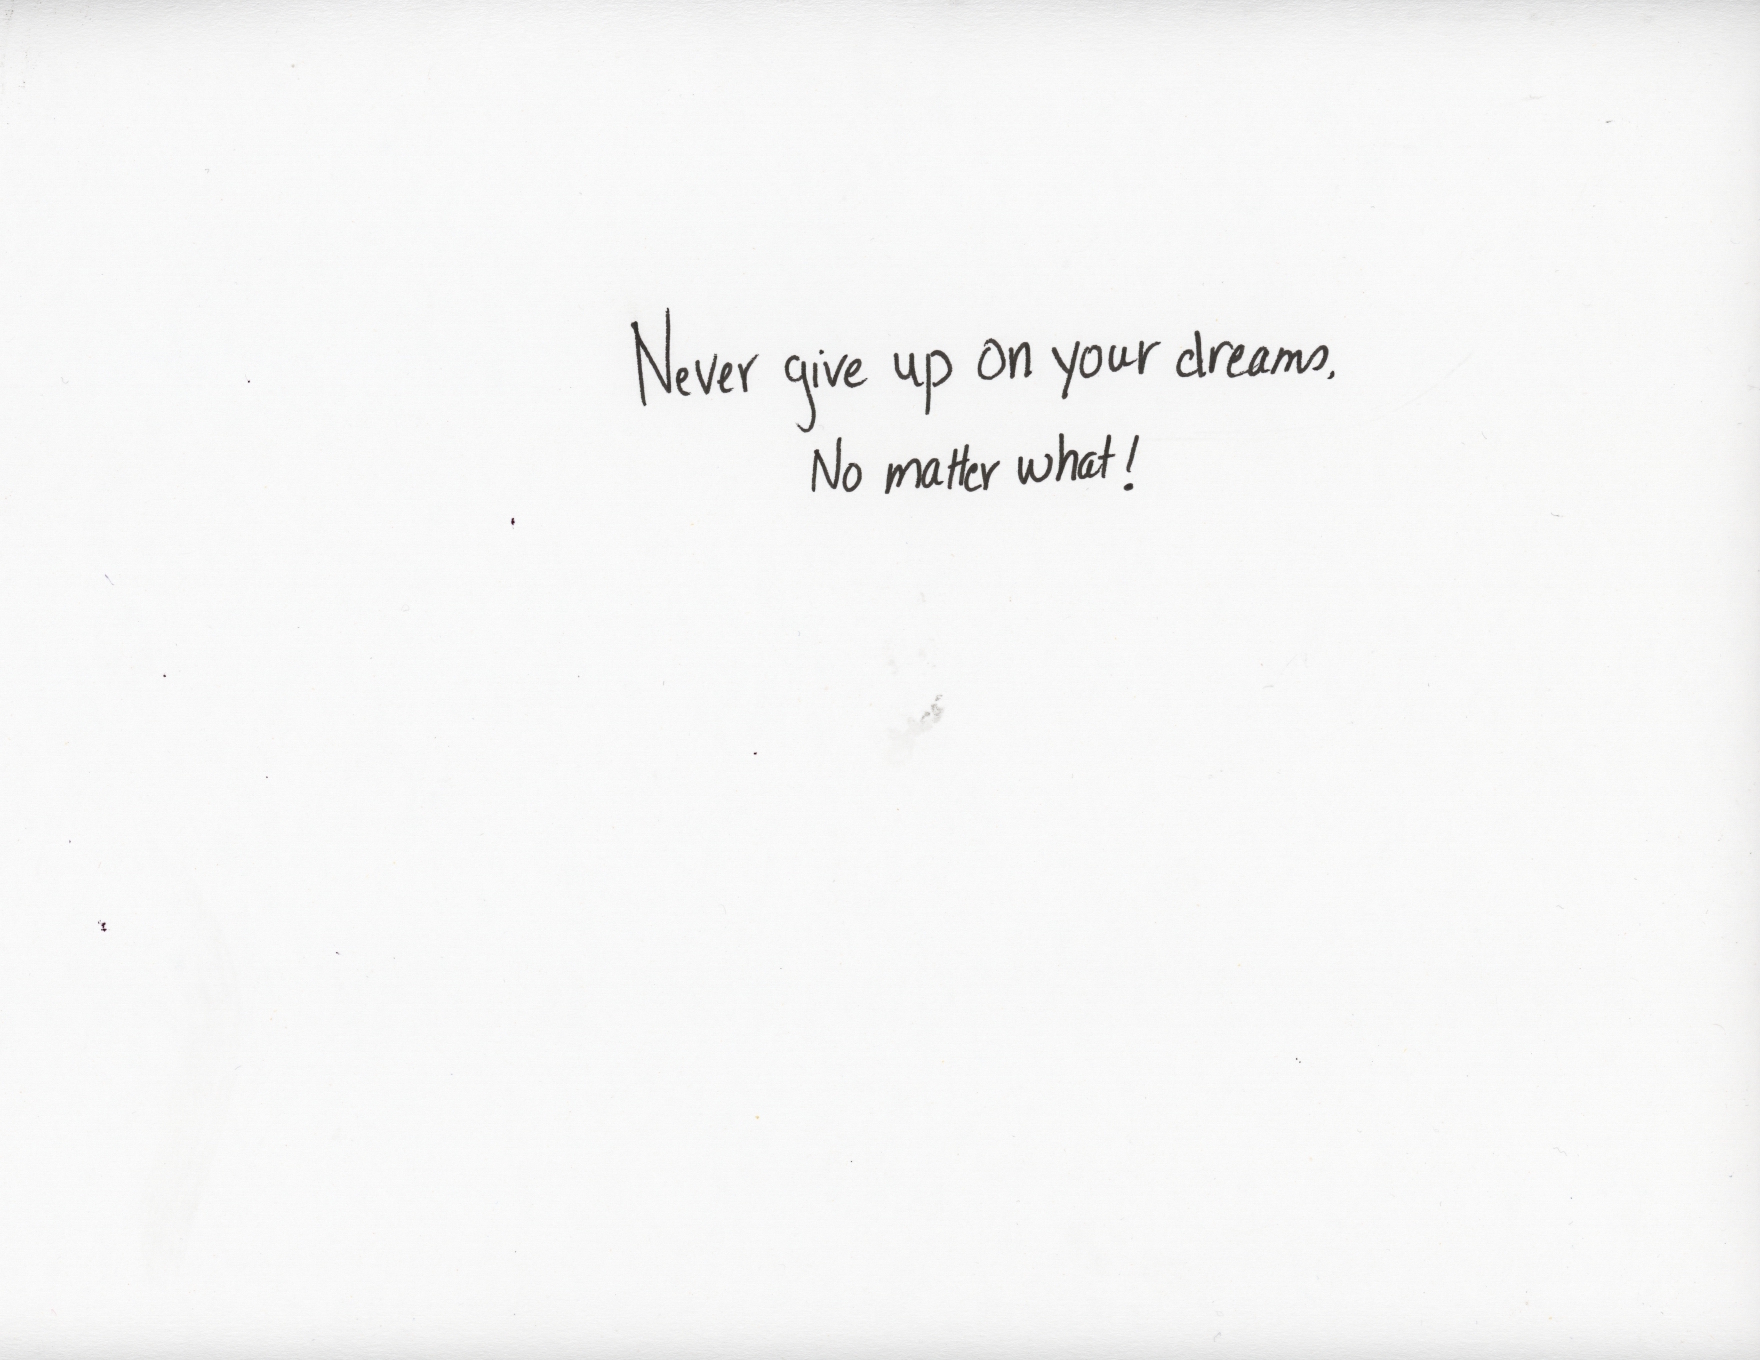 Never give up on your dreams.
No matter what!